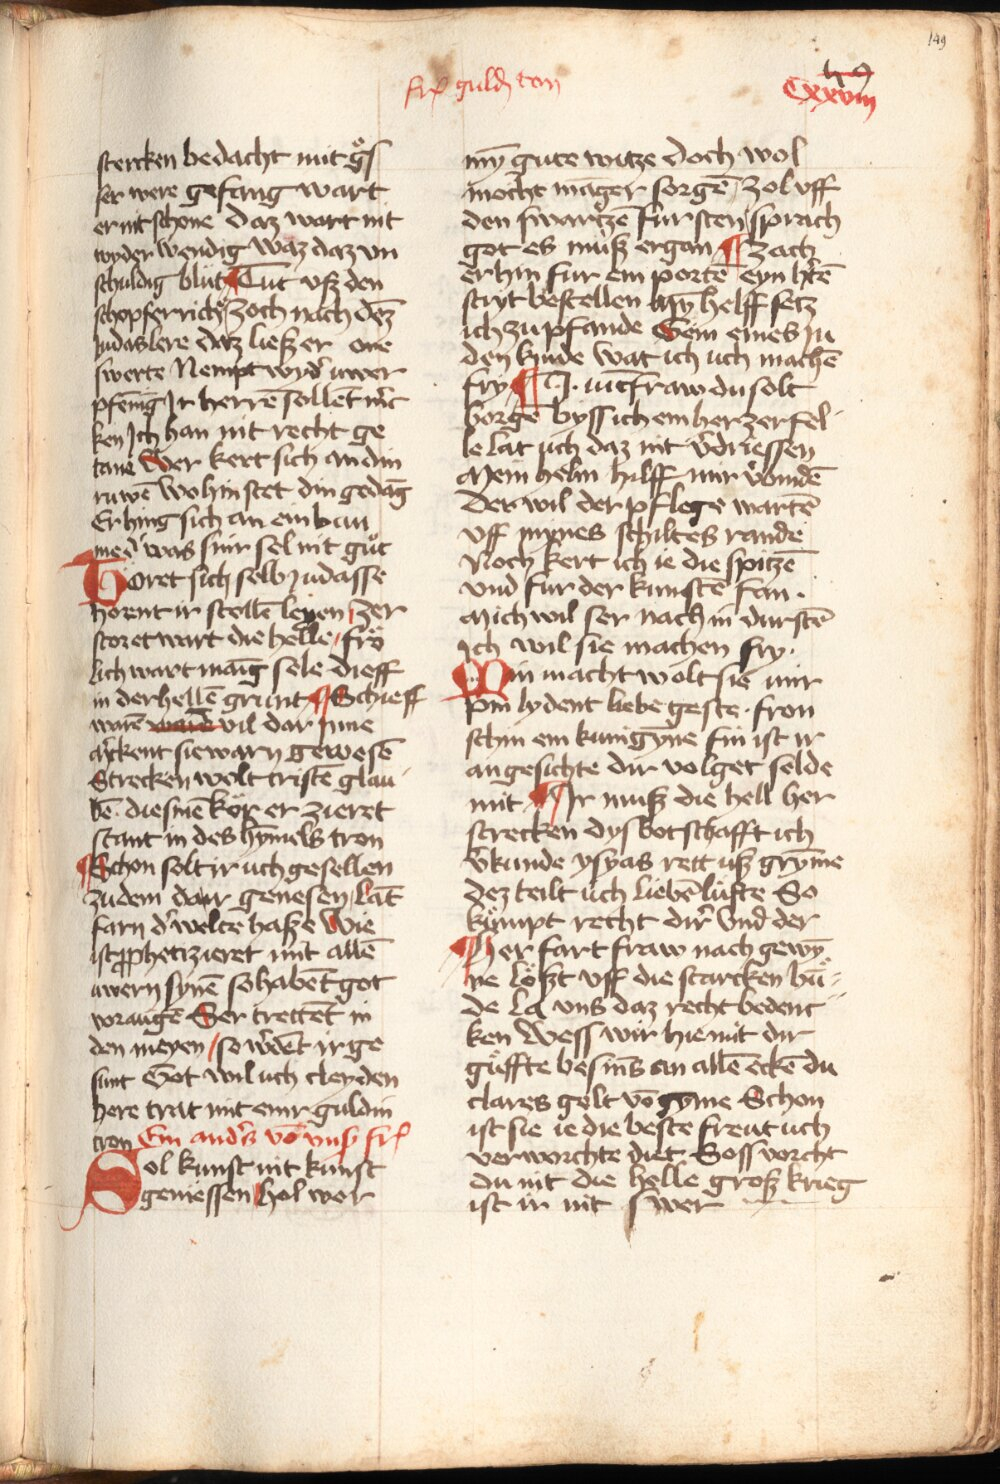 149
frq guldn ton
Cxxviij
stercken bedacht mit gͦs
ser were gefang wart
er nit schone daz wart nit
wyder wendig waz daz vn
schuldig blut Tut vſz den
schopfer rich zoch nach dez
Judas lere daz ließ er one
swerte Nempt wyd' uwer
pfenig Ir herrē sollēt m'c
ken Ich han nit recht ge
tane Wer kert sich an din
ruwē wo hin stet din gedāg
Er hing sich an ein bau
med' was sinr sel nit gut
Toret sich selb Judasse
horent ir stollē leyen zer
storet wart die helle frö
lich wart māg sele dieff
in der hellē grunt Schieff
warē vil dar Inne
erkent sie warn gewesē
Strecken wolt tristē glau
bē die sinē kör er zieret
stant in des hymels tron
Schon solt ir uch gesellen
zu dem dar genesen Lat
farn d' welte haße Wie
ist ꝓphetizieret mit allē
uwern synē so habēt got
vor augē Der trettēt in
den meyen so w'dēt ir ge
sunt Got wil uch cleyden
here trat mit einr guldin
tron Ein and's vō vnsz frq
Sol kunst nit kunst
geniessen hol wor
my gute witze doch wol
mocht māger sorgē zol vff
den swartzē fursten sprach
got es muß ergan zach
er hin fur ein portē eyn h'tē
stryt bestellen helff setz
ich zu pfande Dem eines Ju
den kinde wat ich uch machē
fry J. iucfraw du solt
borgē byss ich ein her zerfel
le Lat uch daz nit v'driessen
Mein helm hilff mir v'bindē
Der wil der pflege wartē
vff mynes schiltes rande
Noch kert ich ie die spitzē
vnd fur der kunstē fan .
Mich wil ser nach in durstē
Ich wil sie machen fry.
Min macht wolt sie mir
pin lydent liebe geste. fron
schin ein kunigyne fin ist ir
angesichte dir volget selde
mit Ir muß die hell her
strecken dys botschafft ich
v'kunde ysyas rett uß gryme
dez teilt uch liebē lufte So
kompt recht dir' vnd der
Her fart fraw nach gewȳ
ne lößt vff die starcken bū
de La vns daz recht beden
ken Wess wir hie mit dir
guffte besinˉs an allē eckē du
clares golt vō gyme Schon
ist sie ie die beste freut uch
verworchte diet Soss vorcht
du nit die helle groß krieg
ist ir nit swer